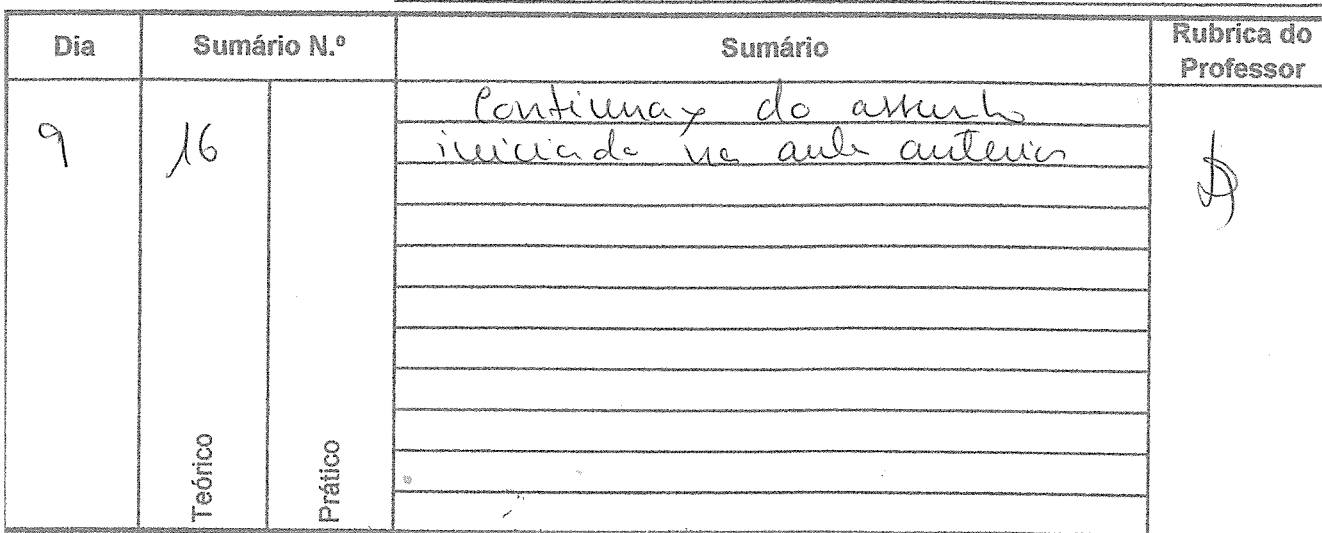 Dia
Sumário N.º
Sumário
Rubrica do
Professor
9
16
Continuaç do assunto
iniciado na aula anterior
Teórico
Prático